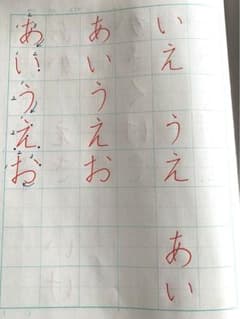 あいうえお
あいうえお
いえ
うえ
あい